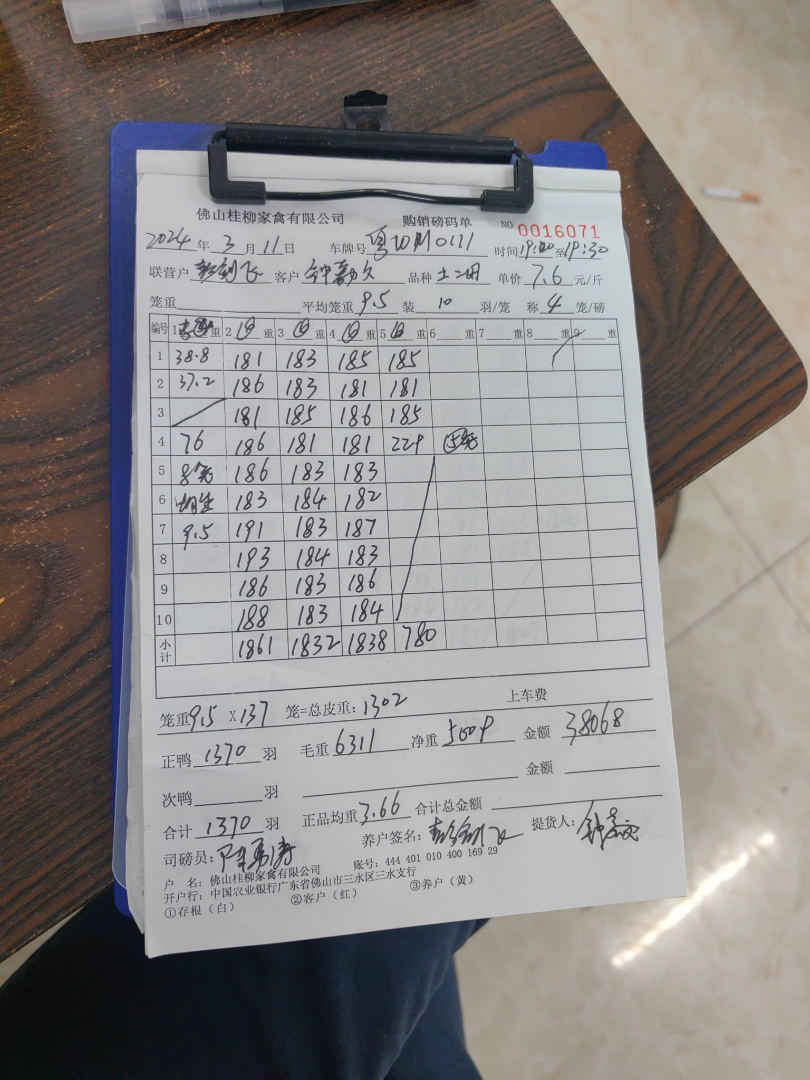 佛山桂柳家禽有限公司 购销磅码单 NO 0016071
2024年 3月 11日 车牌号 粤WM0111 时间19:00至19:30
联营户 客户 品种 土二 单价 7.6 元/斤
笼重 平均笼重 9.5 装 10 羽/笼 称 4 笼/磅
编号 1 重 2 重 3 重 4 重 5 重 6 重 7 重 8 重 9 重
1 38.8 181 183 185 185
2 37.2 186 183 181 181
3 181 185 186 185
4 76 186 181 181 229
5 8 186 183 183
6 183 184 182
7 9.5 191 183 187
8 193 184 183
9 186 183 186
10 188 183 184
小计 1861 1832 1838 780
笼重9.5 X 137 笼=总皮重: 1302 上车费
正鸭 1370 羽 毛重 6311 净重 5009 金额 38068
次鸭 羽 金额
合计 1370 羽 正品均重 3.66 合计总金额
司磅员: 养户签名: 提货人:
户 名: 佛山桂柳家禽有限公司 账号: 444 401 010 400 169 29
开户行: 中国农业银行广东省佛山市三水区三水支行
①存根（白） ②客户（红） ③养户（黄）